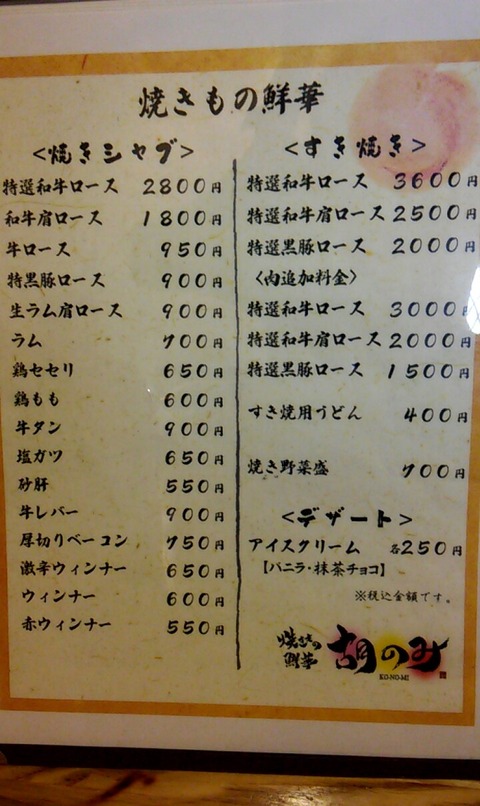 焼きもの鮮華
<焼きシャブ>
特選和牛ロース 2800円
和牛肩ロース 1800円
牛ロース 950円
特黒豚ロース 900円
生ラム肩ロース 900円
ラム 700円
鶏セセリ 650円
鶏もも 600円
牛タン 900円
塩ガツ 650円
砂肝 550円
牛レバー 900円
厚切りベーコン 750円
激辛ウィンナー 650円
ウィンナー 600円
赤ウィンナー 550円
<すき焼き>
特選和牛ロース 3600円
特選和牛肩ロース 2500円
特選黒豚ロース 2000円
〈肉追加料金〉
特選和牛ロース 3000円
特選和牛肩ロース 2000円
特選黒豚ロース 1500円
すき焼用うどん 400円
焼き野菜盛 700円
<デザート>
アイスクリーム 各250円
【バニラ・抹茶チョコ】
※税込金額です。
焼きもの
鮮華
胡のみ
KO-NO-MI